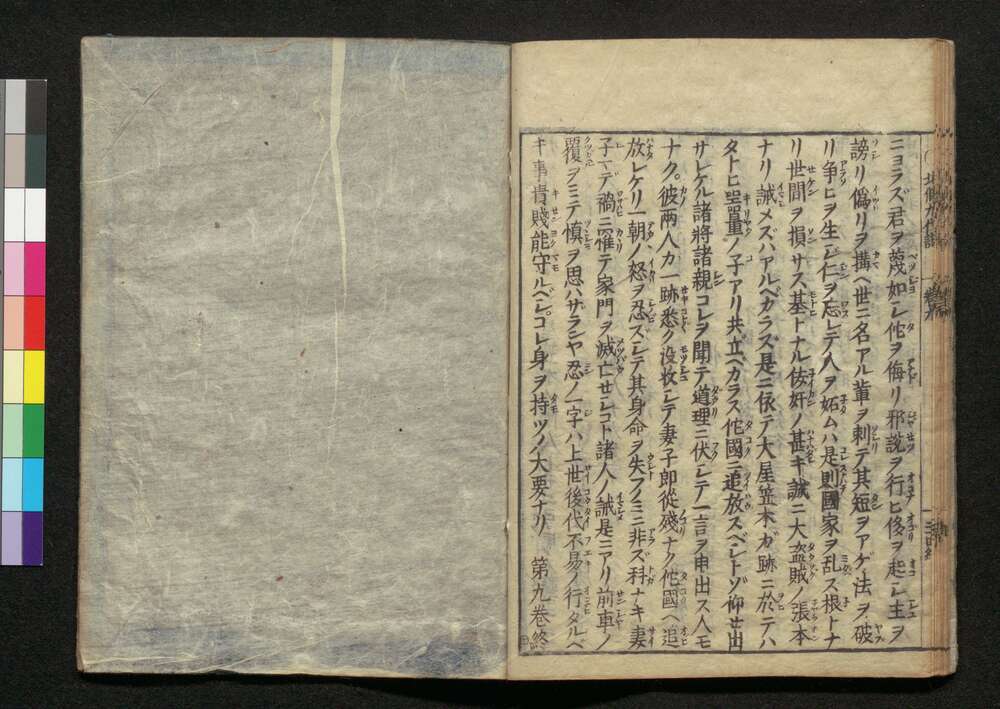 ニヨラズ君ヲ蔑如シ佗ヲ侮リ邪説ヲ行ヒ侈ヲ起シ主ヲ
謗リ僞リヲ搆ヘ世ニ名アル輩ヲ刺テ其短ヲアゲ法ヲ破
リ争ヒヲ生シ仁ヲ忘レテ人ヲ妬ムハ是則國家ヲ乱ス根トナ
リ世間ヲ損サス基トナル佞奸ノ甚キ誠ニ大盗賊ノ張本
ナリ誡メズハアルベカラズ是ニ依テ大屋笠木ガ跡ニ於テハ
タトヒ噐量ノ子アリ共立ベカラス佗國ニ追放スベシトゾ仰セ出
サレケル諸將諸親コレヲ聞テ道理ニ伏シテ一言ヲ申出ス人モ
ナク。彼両人カ一跡悉ク没收シテ妻子郎從殘ナク佗國ヘ追
放レケリ一朝ノ怒ヲ忍スシテ其身命ヲ失フノミニ非ズ科ナキ妻
子マデ禍ニ罹テ家門ヲ滅亡セシコト諸人ノ誡是ニアリ前車ノ
覆ヲミテ慎ヲ思ハザランヤ忍ノ一字ハ上世後代不易ノ行タルベ
キ事貴賤能守ルベシ。コレ身ヲ持ツノ大要ナリ 第九巻終